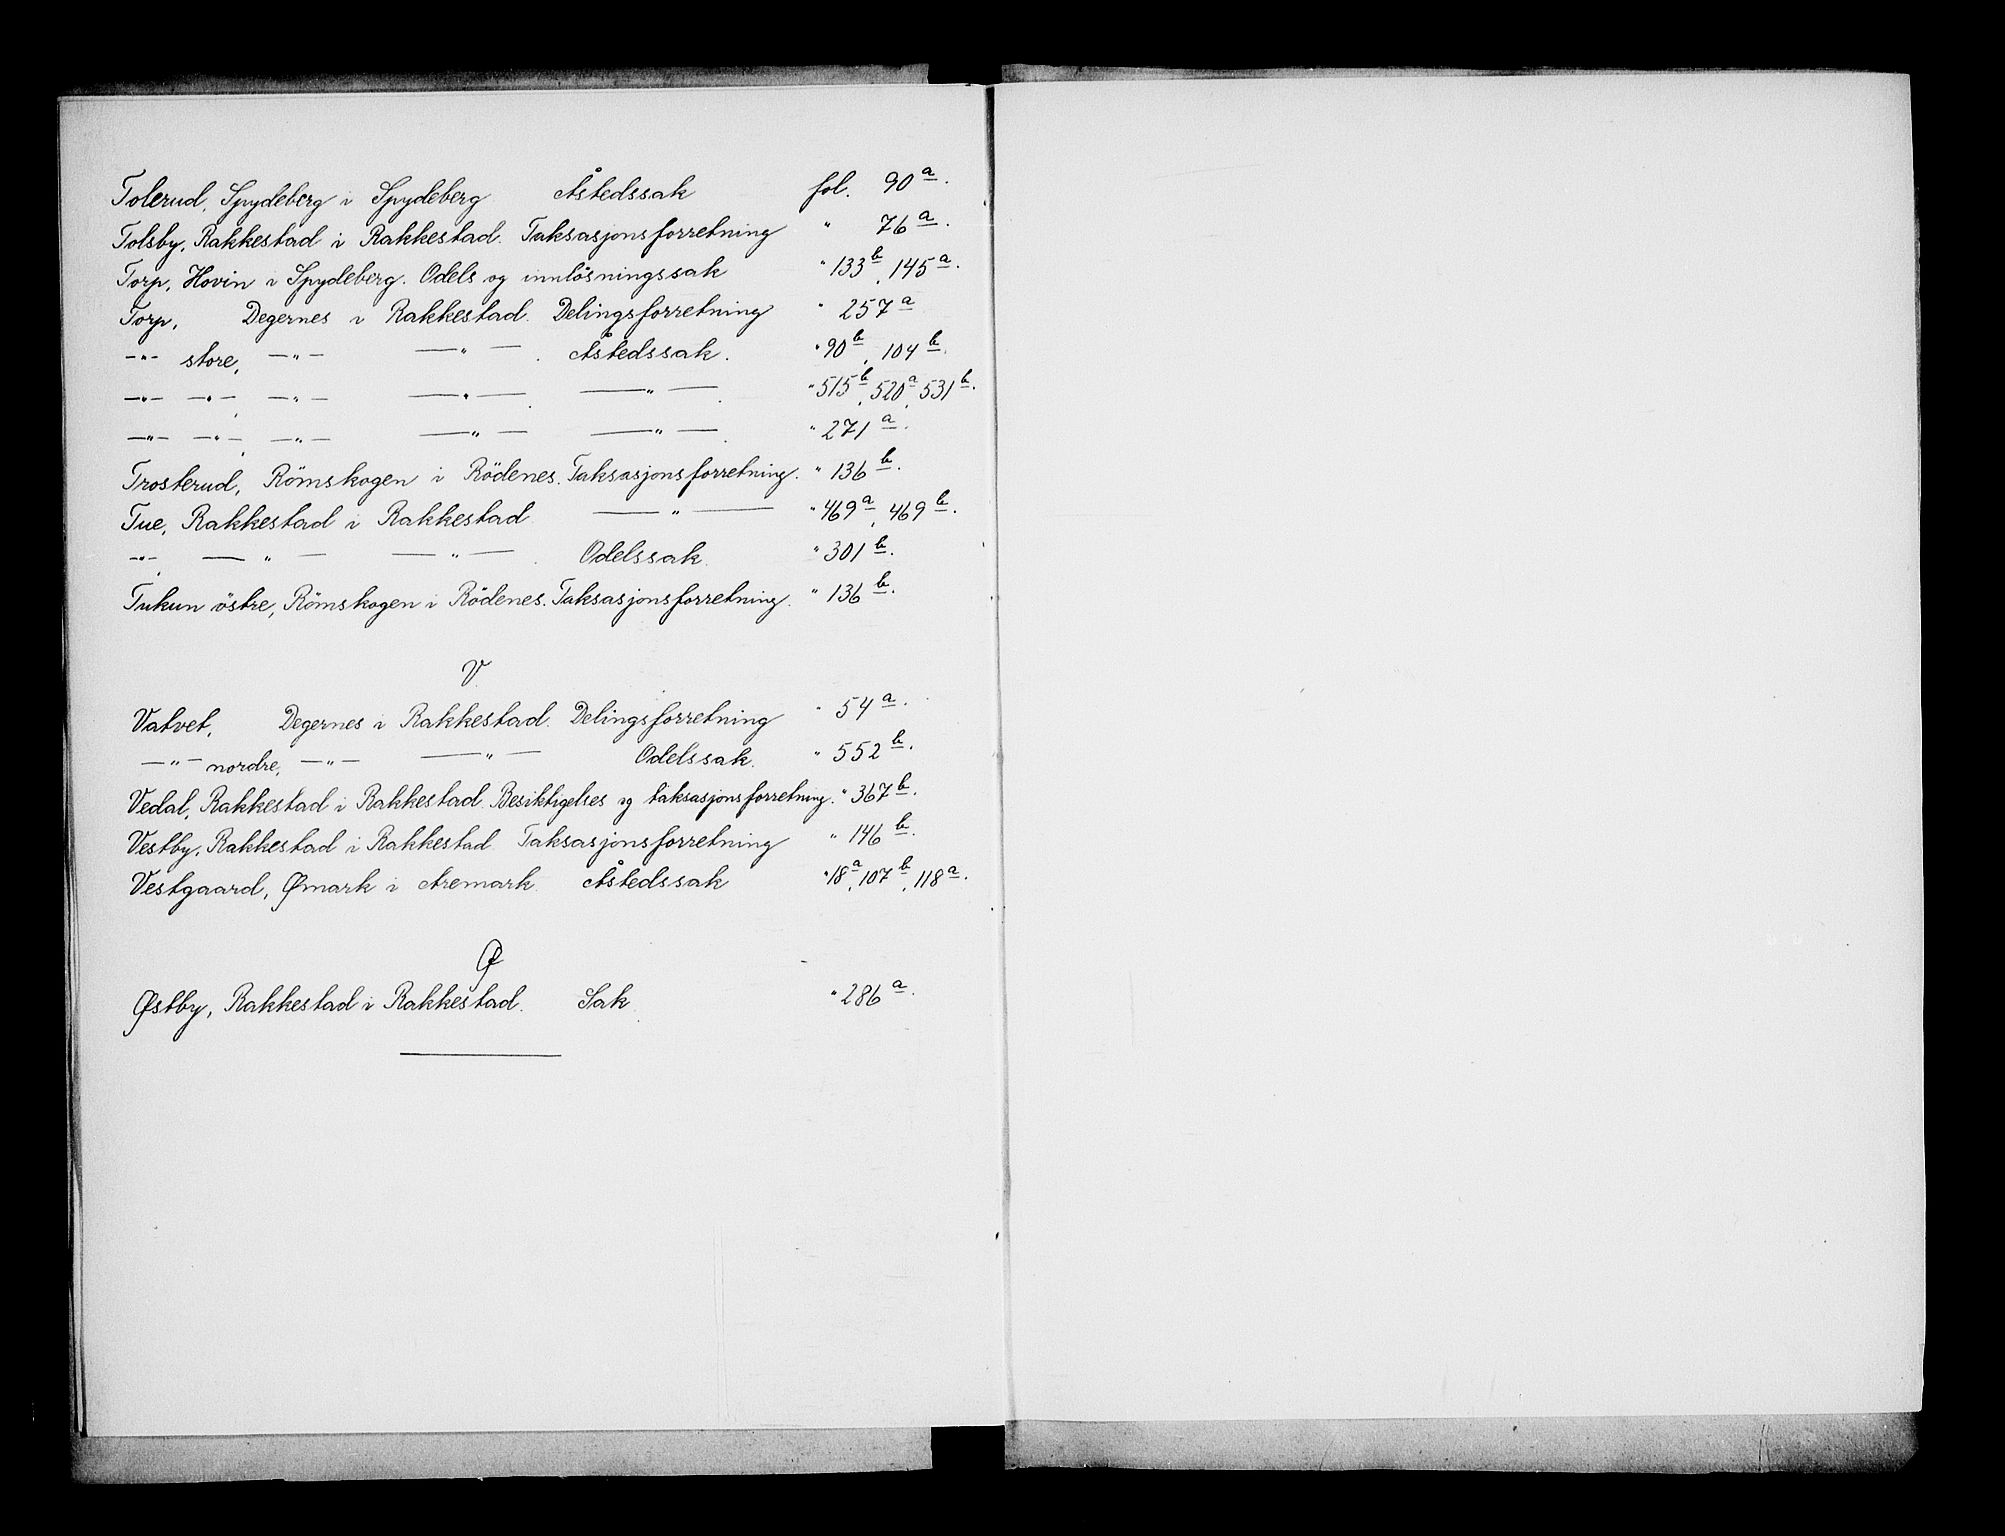 Tolerud, Spydeberg i Spydeberg Åstedssak fol. 90a.
Tolsby, Rakkestad i Rakkestad. Taksasjonsforretning " 76a.
Torp, Hovin i Spydeberg. Odels og innlösningssak " 133b, 145a.
Torp, Degernes i Rakkestad. Delingsforretning " 257a
—"— store, —"— —"—. Åstedssak. " 90b, 104b.
—"— —"—, —"— —"—. —"—. " 515b, 520a, 531b.
—"— —"—, —"— —"— —"—. " 271a.
Trosterud, Römskogen i Rödenes. Taksasjonsforretning. " 136b.
Tue, Rakkestad i Rakkestad. —"— " 469a, 469b.
—"—, —"— —"—. Odelssak. " 301b.
Tukun östre, Römskogen i Rödenes. Taksasjonsforretning. " 136b.
V
Vatvet, Degernes i Rakkestad. Delingsforretning " 54a.
—"— nordre, —"— —"— Odelssak. " 552b.
Vedal, Rakkestad i Rakkestad. Besiktigelses og taksasjonsforretning. " 367b.
Vestby, Rakkestad i Rakkestad. Taksasjonsforretning " 146b.
Vestgaard, Ømark i Aremark. Åstedssak " 18a, 107b, 118a.
Ø
Østby, Rakkestad i Rakkestad. Sak. " 286a.